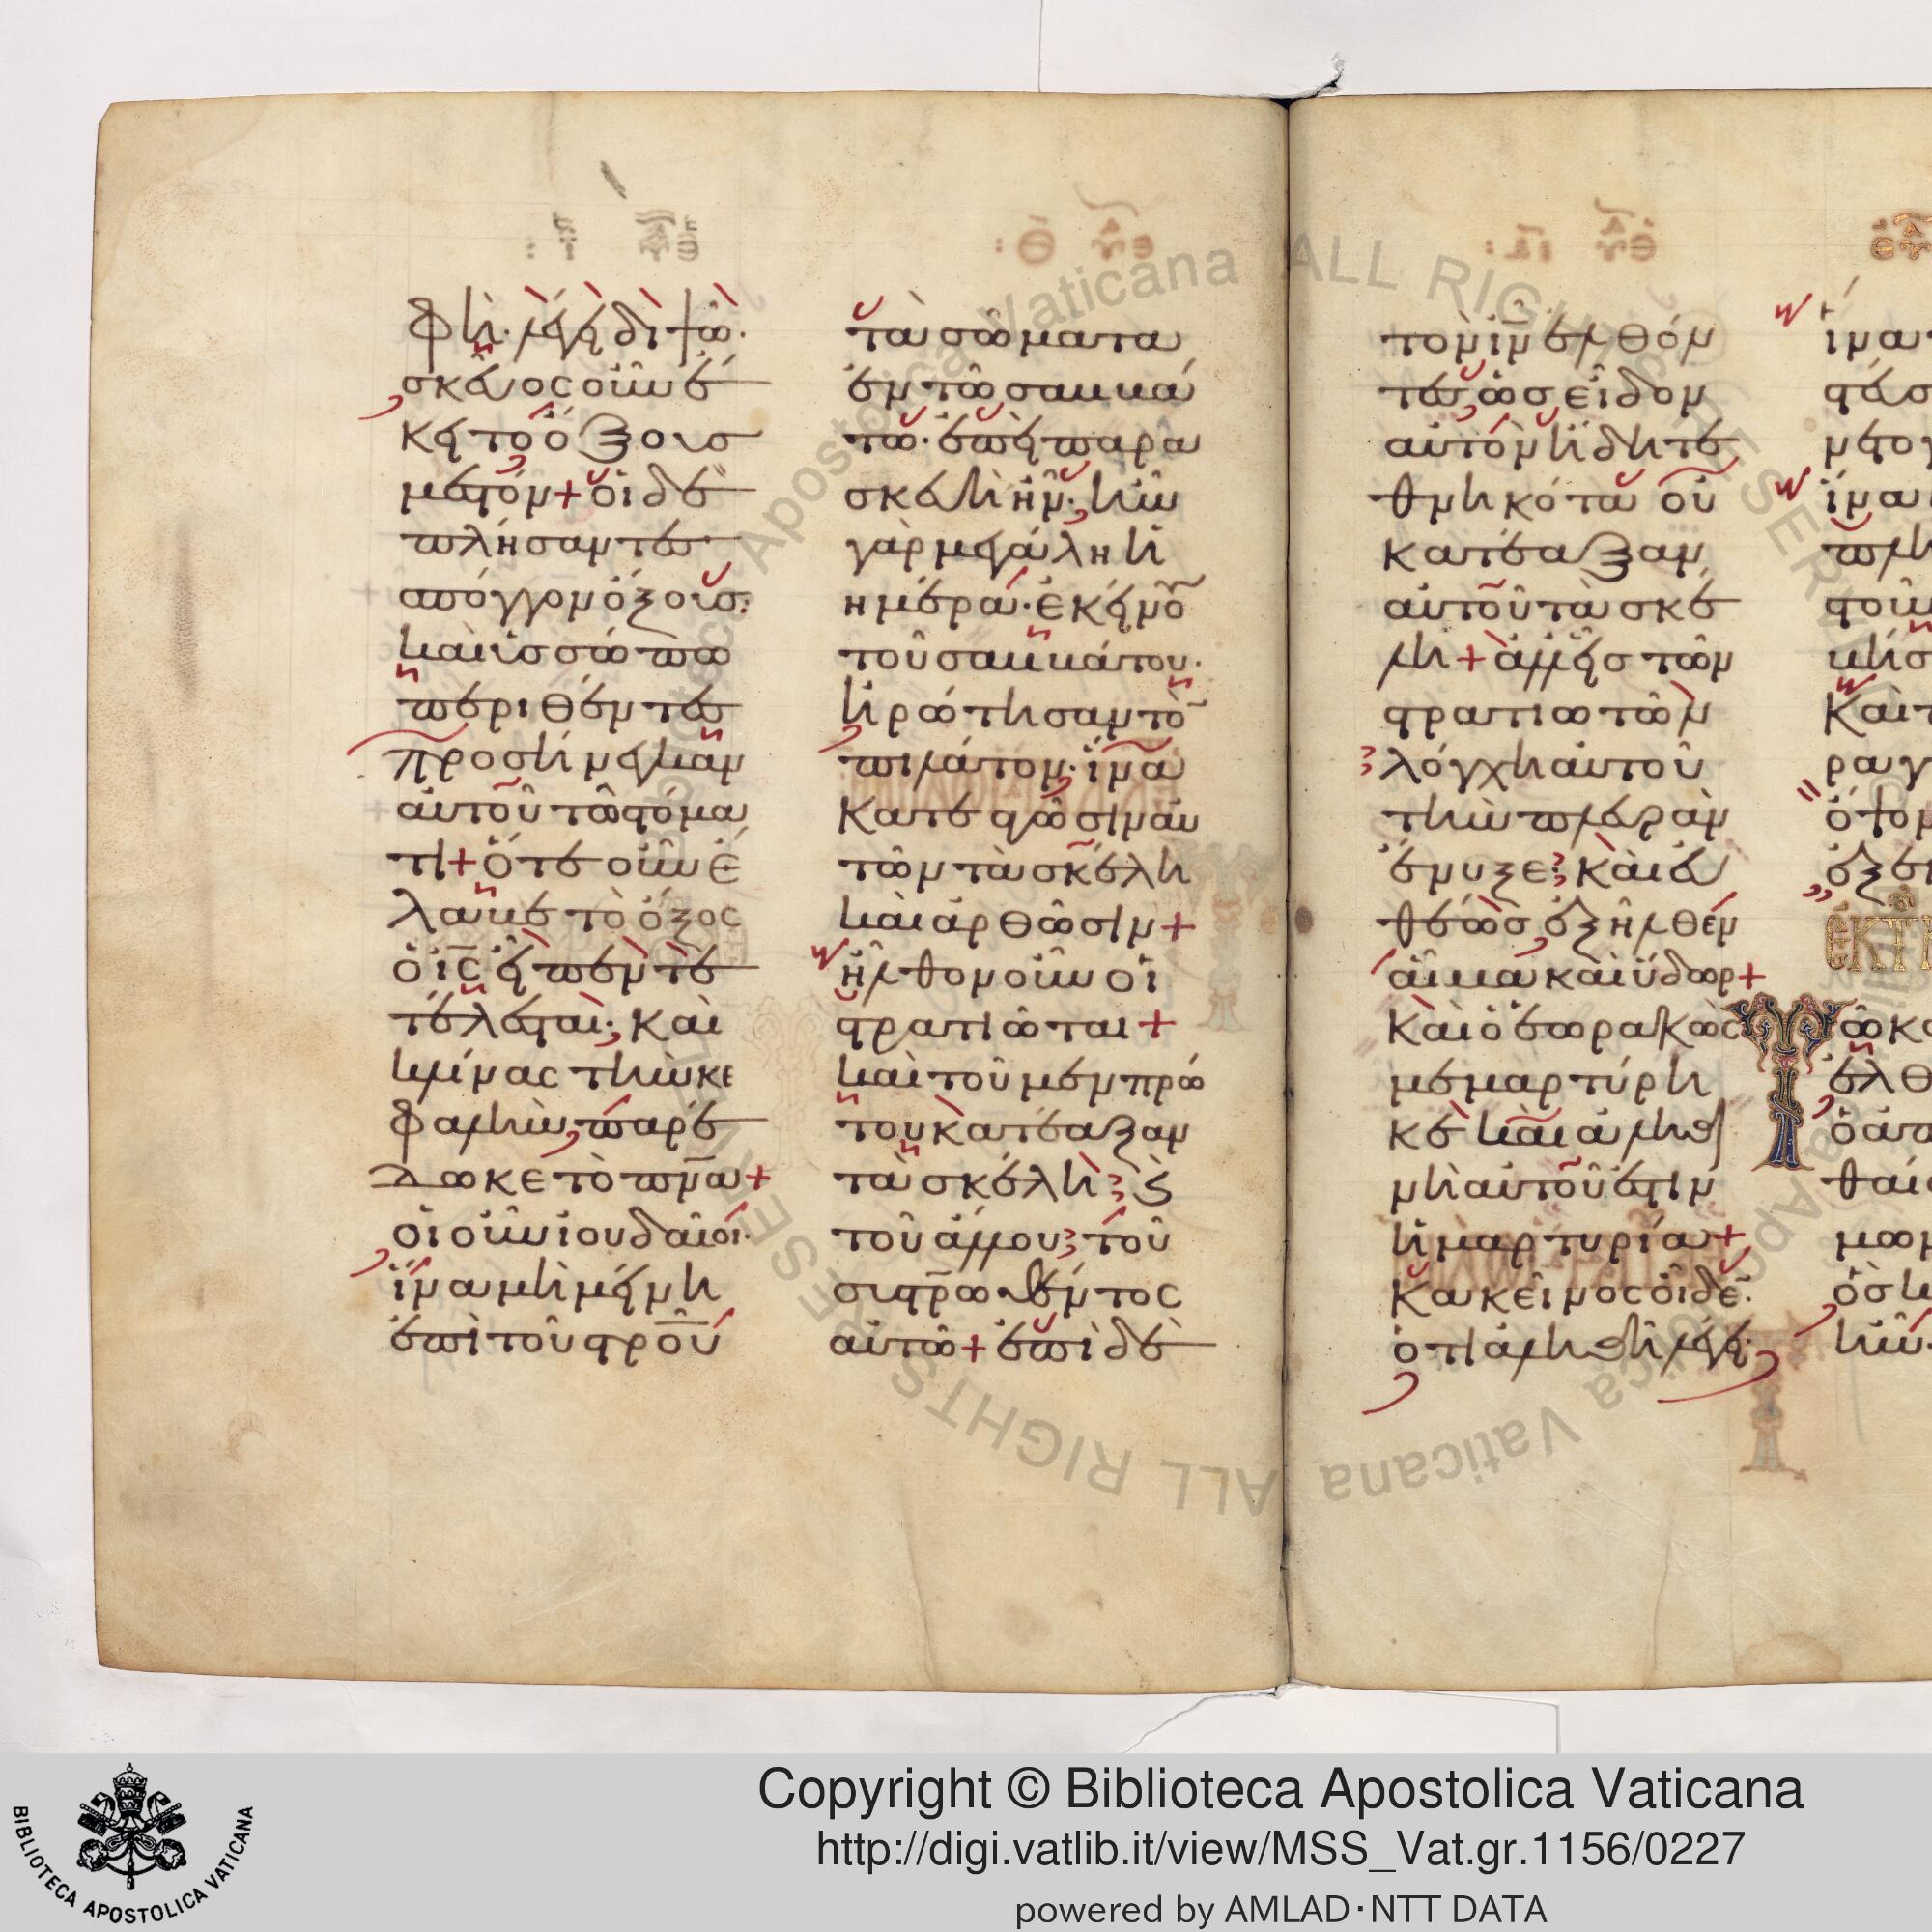 φη· λέγει διψῶ·
σκεῦος οὖν ἔ
κειτο ὄξους
μεστόν + οἱ δὲ
πλήσαντες
σπόγγον ὄξους·
καὶ ὑσσώπω
περιθέντες
προσήνεγκαν
αὐτοῦ τῶ στόμα
τι + Ὅτε οὖν ἔ
λαβε τὸ ὄξος
ὁ ις εἶπεν τε
τέλεσται· καὶ
κλίνας τὴν κε
φαλὴν, παρέ
δωκε τὸ πνα +
οἱ οὖν ἰουδαῖοι·
ἵνα μὴ μείνη
ἐπὶ τοῦ στρου
τὰ σώματα
ἐν τῶ σαββά
τω· ἐπεὶ παρα
σκευὴ ἦν· ἦν
γὰρ μεγάλη ἡ
ἡμέρα· ἐκείνο
τοῦ σαββάτου·
ἠρώτησαν τὸ
πιλάτον· ἵνα
κατεαγῶσιν αὐ
τῶν τὰ σκέλη
καὶ ἀρθῶσιν +
ἦλθον οὖν οἱ
στρατιῶται +
καὶ τοῦ μὲν πρώ
του κατέαξαν
τὰ σκέλη· ϗ
τοῦ ἄλλου· τοῦ
συστρωθέντος
αὐτῶ + ἐπὶ δὲ
τὸν ιν ἐλθόν
τες, ὡς εἶδον
αὐτὸν ἤδη τε
θνηκότα οὐ
κατέαξαν
αὐτοῦ τὰ σκέ
λη + ἀλλ' εἷς τῶν
στρατιωτῶν
λόγχη αὐτοῦ
τὴν πλευρὰν
ἔνυξε· καὶ εὐ
θέως ἐξῆλθεν
αἷμα καὶ ὕδωρ +
Καὶ ὁ ἑωρακὼς
μεμαρτύρη
κε καὶ ἀληθι
νὴ αὐτοῦ ἐστιν
ἡ μαρτυρία +
Κακεῖνος οἶδε·
ὅτι ἀληθῆ λέγει·
Τ
Copyright © Biblioteca Apostolica Vaticana
http://digi.vatlib.it/view/MSS_Vat.gr.1156/0227
powered by AMLAD·NTT DATA
BIBLIOTECA APOSTOLICA VATICANA